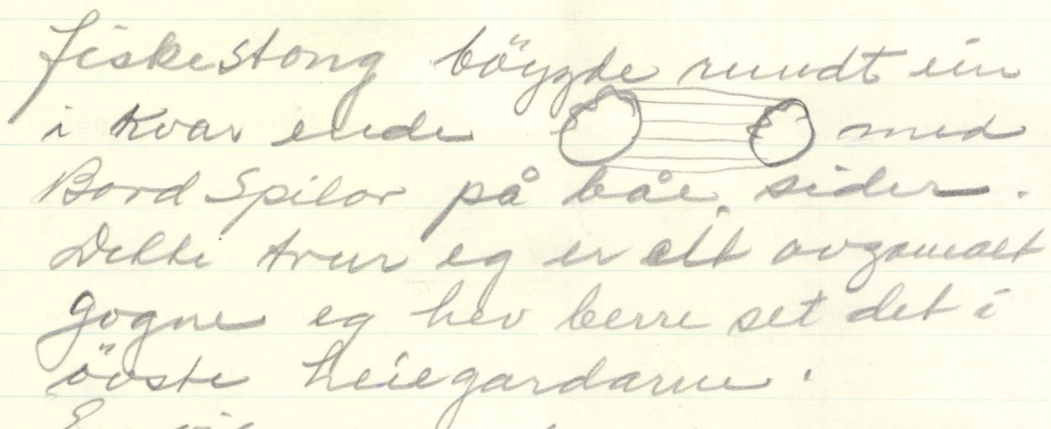 fiskestong böygde rundt ein
i kvar ende med
Bord Spilor på båe sider.
Dette trur eg er eit avgamalt
gogne eg hev berre set det i
övste heiegardarne.